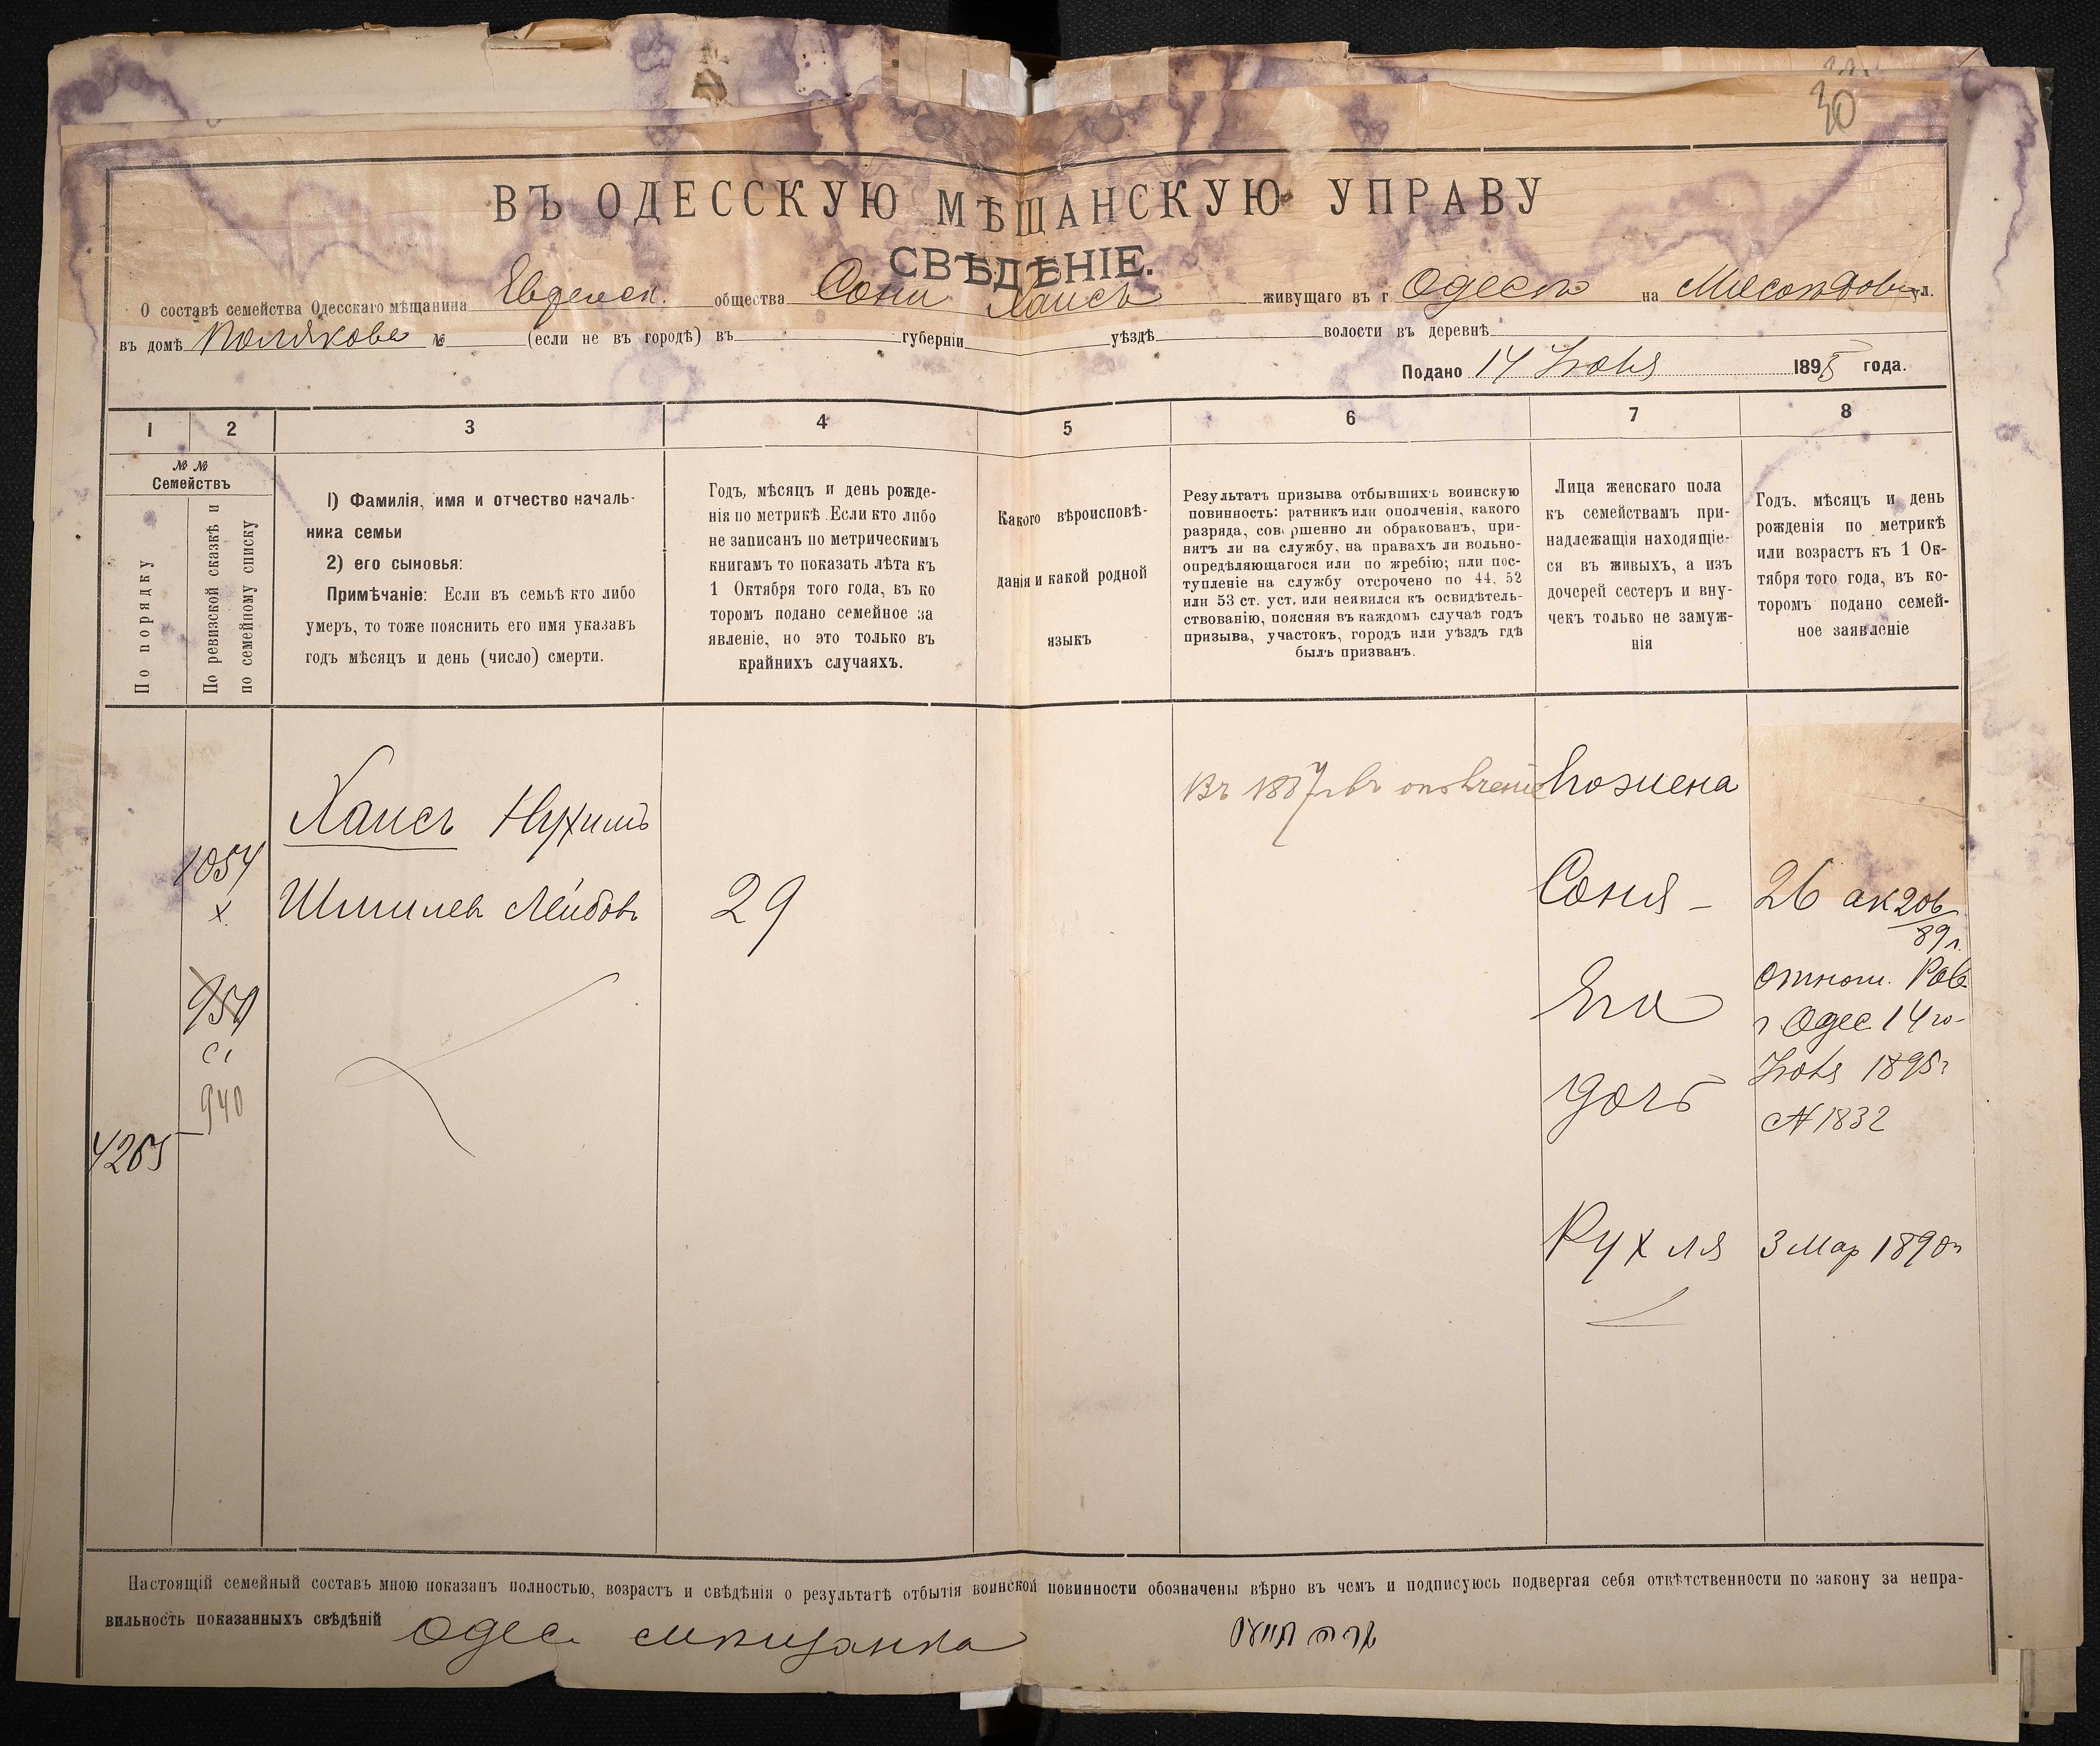 30
ВЪ ОДЕССКУЮ МѢЩАНСКУЮ УПРАВУ
СВѢДѢНІЕ.
О составѣ семейства Одесскаго мѣщанина Еврейск. общества Сони Хаисъ живущаго въ г Одессѣ на ул.
въ домѣ Полякова № (если не въ городѣ) въ губерніи уѣздѣ волости въ деревнѣ
Подано 14 Іюля 1895 года.
1 2 3 4 5 6 7 8
№ №
Семействъ
По порядку
По ревизской сказкѣ и
по семейному списку
1) Фамилія, имя и отчество началь-
ника семьи
2) его сыновья:
Примѣчаніе: Если въ семьѣ кто либо
умеръ, то тоже пояснить его имя указавъ
годъ мѣсяцъ и день (число) смерти.
Годъ, мѣсяцъ и день рожде-
нія по метрикѣ. Если кто либо
не записанъ по метрическимъ
книгамъ то показать лѣта къ
1 Октября того года, въ ко
торомъ подано семейное за
явленіе, но это только въ
крайнихъ случаяхъ.
Какого вѣроисповѣ-
данія и какой родной
языкъ
Результатъ призыва отбывшихъ воинскую
повинность: ратникъ или ополченія, какого
разряда, совершенно ли обракованъ, при-
нятъ ли на службу, на правахъ ли вольно-
опредѣляющагося или по жребію; или пос-
тупленіе на службу отсрочено по 44, 52
или 53 ст. уст. или неявился къ освидѣтель-
ствованію, поясняя въ каждомъ случаѣ годъ
призыва, участокъ, городъ или уѣздъ гдѣ
былъ призванъ.
Лица женскаго пола
къ семействамъ при-
надлежащія находящіе-
ся въ живыхъ, а изъ
дочерей сестеръ и вну-
чекъ только не замуж-
нія
Годъ, мѣсяцъ и день
рожденія по метрикѣ
или возрастъ къ 1 Ок-
тября того года, въ ко-
торомъ подано семей-
ное заявленіе
Хаисъ Нухимъ
Въ 1887 г въ ополченіе
его жена
1054
х
Шмилев Лейбовъ
29
Соня -
26 ак 206/89 г.
950
Его
отнош. Рав
г Одес 14 го
940
дочь
Іюля 1895 г
№ 1832
4265
Рухля
3 Мар 1890 г
Настоящій семейный составъ мною показанъ полностью, возрастъ и свѣдѣнія о результатѣ отбытія воинской повинности обозначены вѣрно въ чемъ и подписуюсь подвергая себя отвѣтственности по закону за непра-
вильность показанныхъ свѣдѣній Одес. мѣщанка